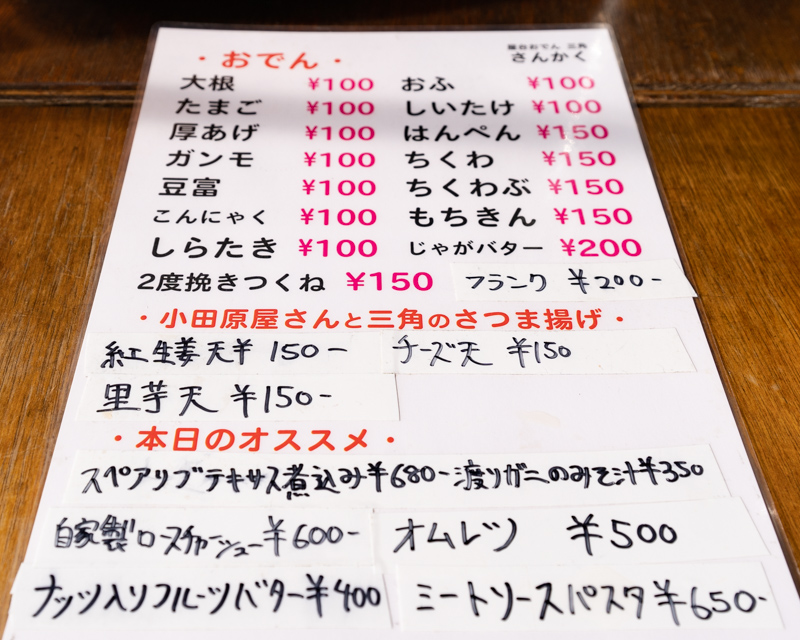 ・おでん・
屋台おでん 三角
さんかく
大根 ¥100 おふ ¥100
たまご ¥100 しいたけ ¥100
厚あげ ¥100 はんぺん ¥150
ガンモ ¥100 ちくわ ¥150
豆富 ¥100 ちくわぶ ¥150
こんにゃく ¥100 もちきん ¥150
しらたき ¥100 じゃがバター ¥200
2度挽きつくね ¥150 フランク ¥200-
・小田原屋さんと三角のさつま揚げ・
紅生姜天¥150- チーズ天 ¥150
里芋天 ¥150-
・本日のオススメ・
スペアリブテキサス煮込み¥680- 渡りガニのみそ汁¥350
自家製ロースチャーシュー¥600- オムレツ ¥500
ナッツ入りフルーツバター¥400 ミートソースパスタ¥650-